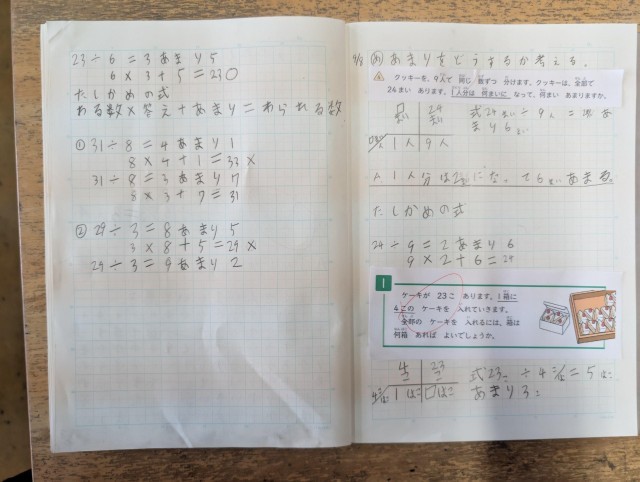 23÷6=3あまり5
6×3+5=23○
たしかめの式
わる数×答え+あまり=わられる数
① 31÷8=4あまり1
8×4+1=33×
31÷8=3あまり7
8×3+7=31
② 29÷3=8あまり5
3×8+5=29×
29÷3=9あまり2
9/8 め あまりをどうするか考える。
クッキーを、9人で 同じ 数ずつ 分けます。クッキーは、全部で
24まい あります。1人分は 何まいに なって、何まい あまりますか。
□まい 24まい
式24まい÷9人=2まいあ
まり6まい
1人 9人
A 1人分は2まいになって6まいあまる。
たしかめの式
24÷9=2あまり6
9×2+6=24
1
ケーキが 23こ あります。1箱に
4この ケーキを 入れていきます。
全部の ケーキを 入れるには、箱は
何箱 あれば よいでしょうか。
4こ 23こ
式23こ÷4こ=5はこ
1はこ □はこ
あまり3こ